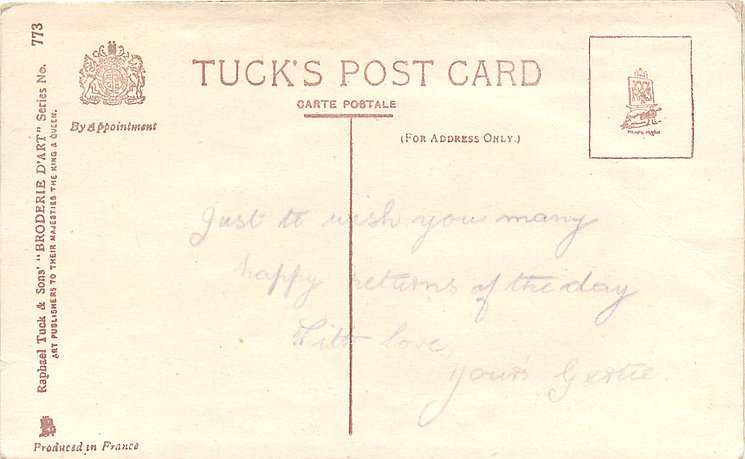 TUCK'S POST CARD
CARTE POSTALE
(FOR ADDRESS ONLY.)
By Appointment
Raphael Tuck & Sons' "BRODERIE D'ART" Series No. 773
ART PUBLISHERS TO THEIR MAJESTIES THE KING & QUEEN.
Just to wish you many
happy returns of the day
With love,
Yours Gertie.
Produced in France